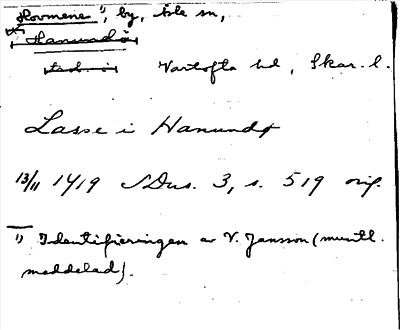 Hovmene ¹), by, Åsle sn,
Hanundø
Vartofta hd, Skar. l.
Lasse i Hanundø
13/11 1419 SDns. 3, s. 519 orig.
¹) Identifieringen av V. Jansson (muntl.
meddelad).